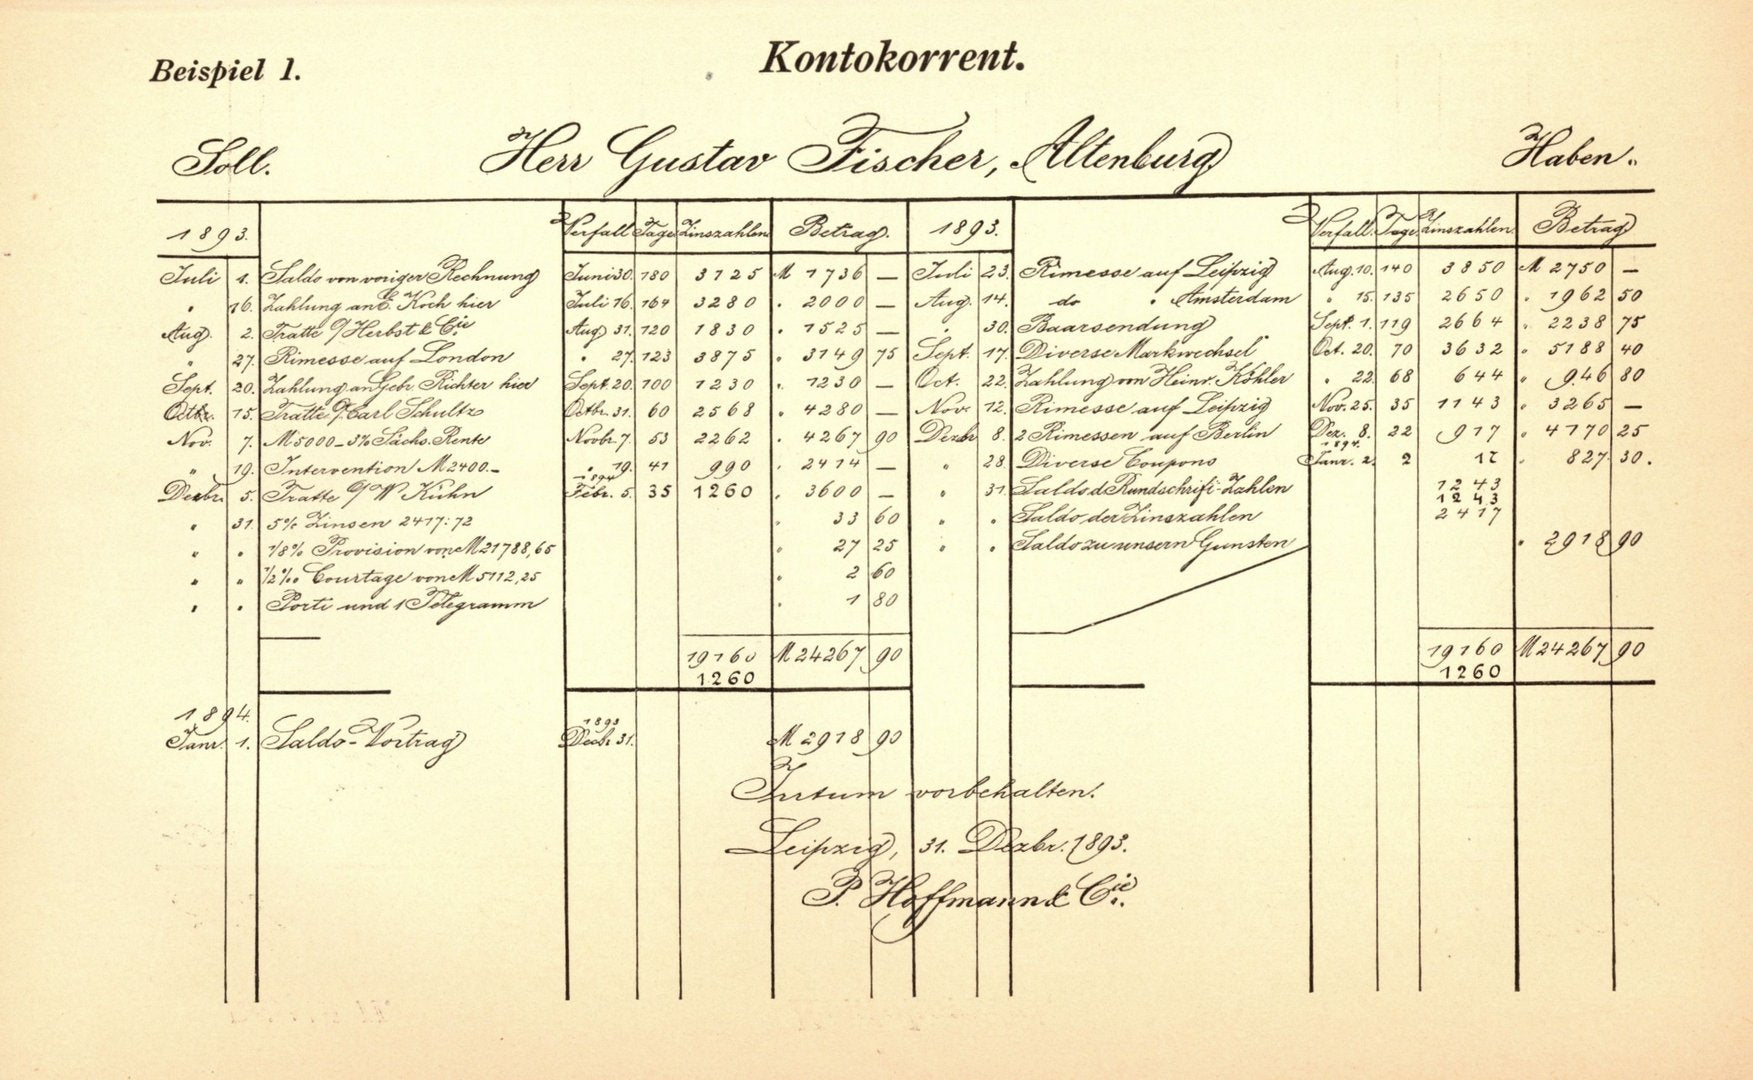 Beispiel 1.
Kontokorrent.
Soll. Herr Gustav Fischer, Altenburg Haben.
1893. Verfall Tage Zinszahlen Betrag. 1893. Verfall Tage Zinszahlen Betrag
Juli 1. Saldo von voriger Rechnung Juni 30. 180 3125 M 1736 — Juli 23. Rimesse auf Leipzig Aug. 10. 140 3850 M 2750 —
" 16. Zahlung an E. Koch hier Juli 16. 164 3280 " 2000 — Aug. 14. do " Amsterdam " 15. 135 2650 " 1962 50
Aug. 2. Tratte O/ Herbst & Cie Aug. 31. 120 1830 " 1525 — " 30. Baarsendung Sept. 1. 119 2664 " 2238 75
" 27. Rimesse auf London " 27. 123 3875 " 3149 75 Sept. 17. Diverse Markwechsel Oct. 20. 70 3632 " 5188 40
Sept. 20. Zahlung an Gebr. Richter hier Sept. 20. 100 1230 " 1230 — Oct. 22. Zahlung von Heinr. Köhler " 22. 68 644 " 946 80
Octbr. 15. Tratte O/ Carl Schultz Octbr. 31. 60 2568 " 4280 — Nov. 12. Rimesse auf Leipzig Nov. 25. 35 1143 " 3265 —
Nov. 7. M 5000 - 3% Sächs. Rente Novbr. 7. 53 2262 " 4267 90 Dezbr. 8. 2 Rimessen auf Berlin Dez. 8. 22 917 " 4170 25
" 19. Intervention M 2400.- " 19. 41 990 " 2414 — " 28. Diverse Coupons 1894. Janr. 2. 2 17 " 827 30.
Dezbr. 5. Tratte O/ W Kühn 1894 Febr. 5. 35 1260 " 3600 — " 31. Saldo d. Rundschrift-Zahlen 1243
1243
" 31. 5% Zinsen 2417:72 " 33 60 " " Saldo der Zinszahlen 2417
" " 1/8% Provision von M 21788,65 " 27 25 " " Saldo zu unsern Gunsten " 2918 90
" " 1/2‰ Courtage von M 5112,25 " 2 60
" " Porti und 1 Telegramm " 1 80
19160 M 24267 90 19160 M 24267 90
1260 1260
1894.
Janr. 1. Saldo-Vortrag 1893 Decbr. 31. M 2918 90
Irrtum vorbehalten.
Leipzig, 31. Dezbr. 1893.
P. Hoffmann & Cie.